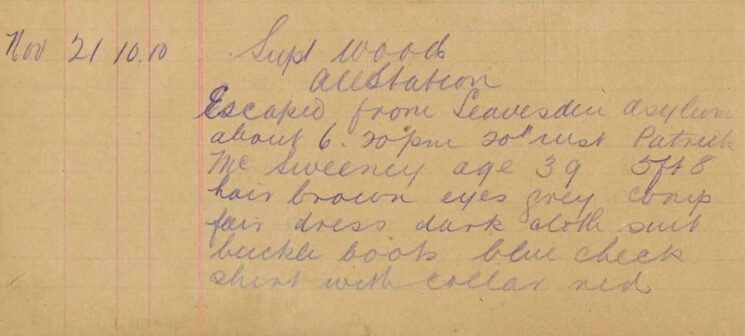 Nov 21 10.10 Supt Wood
All Station
Escaped from Leavesden asylum
about 6.20pm 20th inst Patrick
Mc Sweeney age 39 5ft 8
hair brown eyes grey comp
fair dress dark cloth suit
buckle boots blue check
shirt with collar red